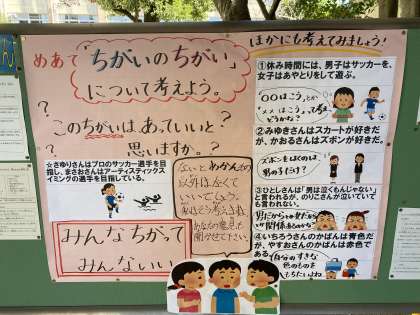 めあて「ちがいのちがい」
について考えよう。
?
?
このちがいは、あっていいと
思いますか。?
☆さゆりさんはプロのサッカー選手を目
指し、まさおさんはアーティスティックス
イミングの選手を目指している。
みんなちがって
みんないい
以外はなくて
いいでしょう。
あなたの意見も
聞かせて下さい。
ほかにも考えてみましょう!
①休み時間には、男子はサッカーを、
女子はあやとりをして遊ぶ。
②みゆきさんはスカートが好きだ
が、かおるさんはズボンが好きだ。
ズボンをはくのは、
男の子だけ?
③ひとしさんは「男は泣くもんじゃない」
と言われるが、のりこさんが泣いていて
も言われない。
④いちろうさんのかばんは青色だ
が、やすおさんのかばんは赤色で
ある。
自分のすきな
色のものを
もちたいよね